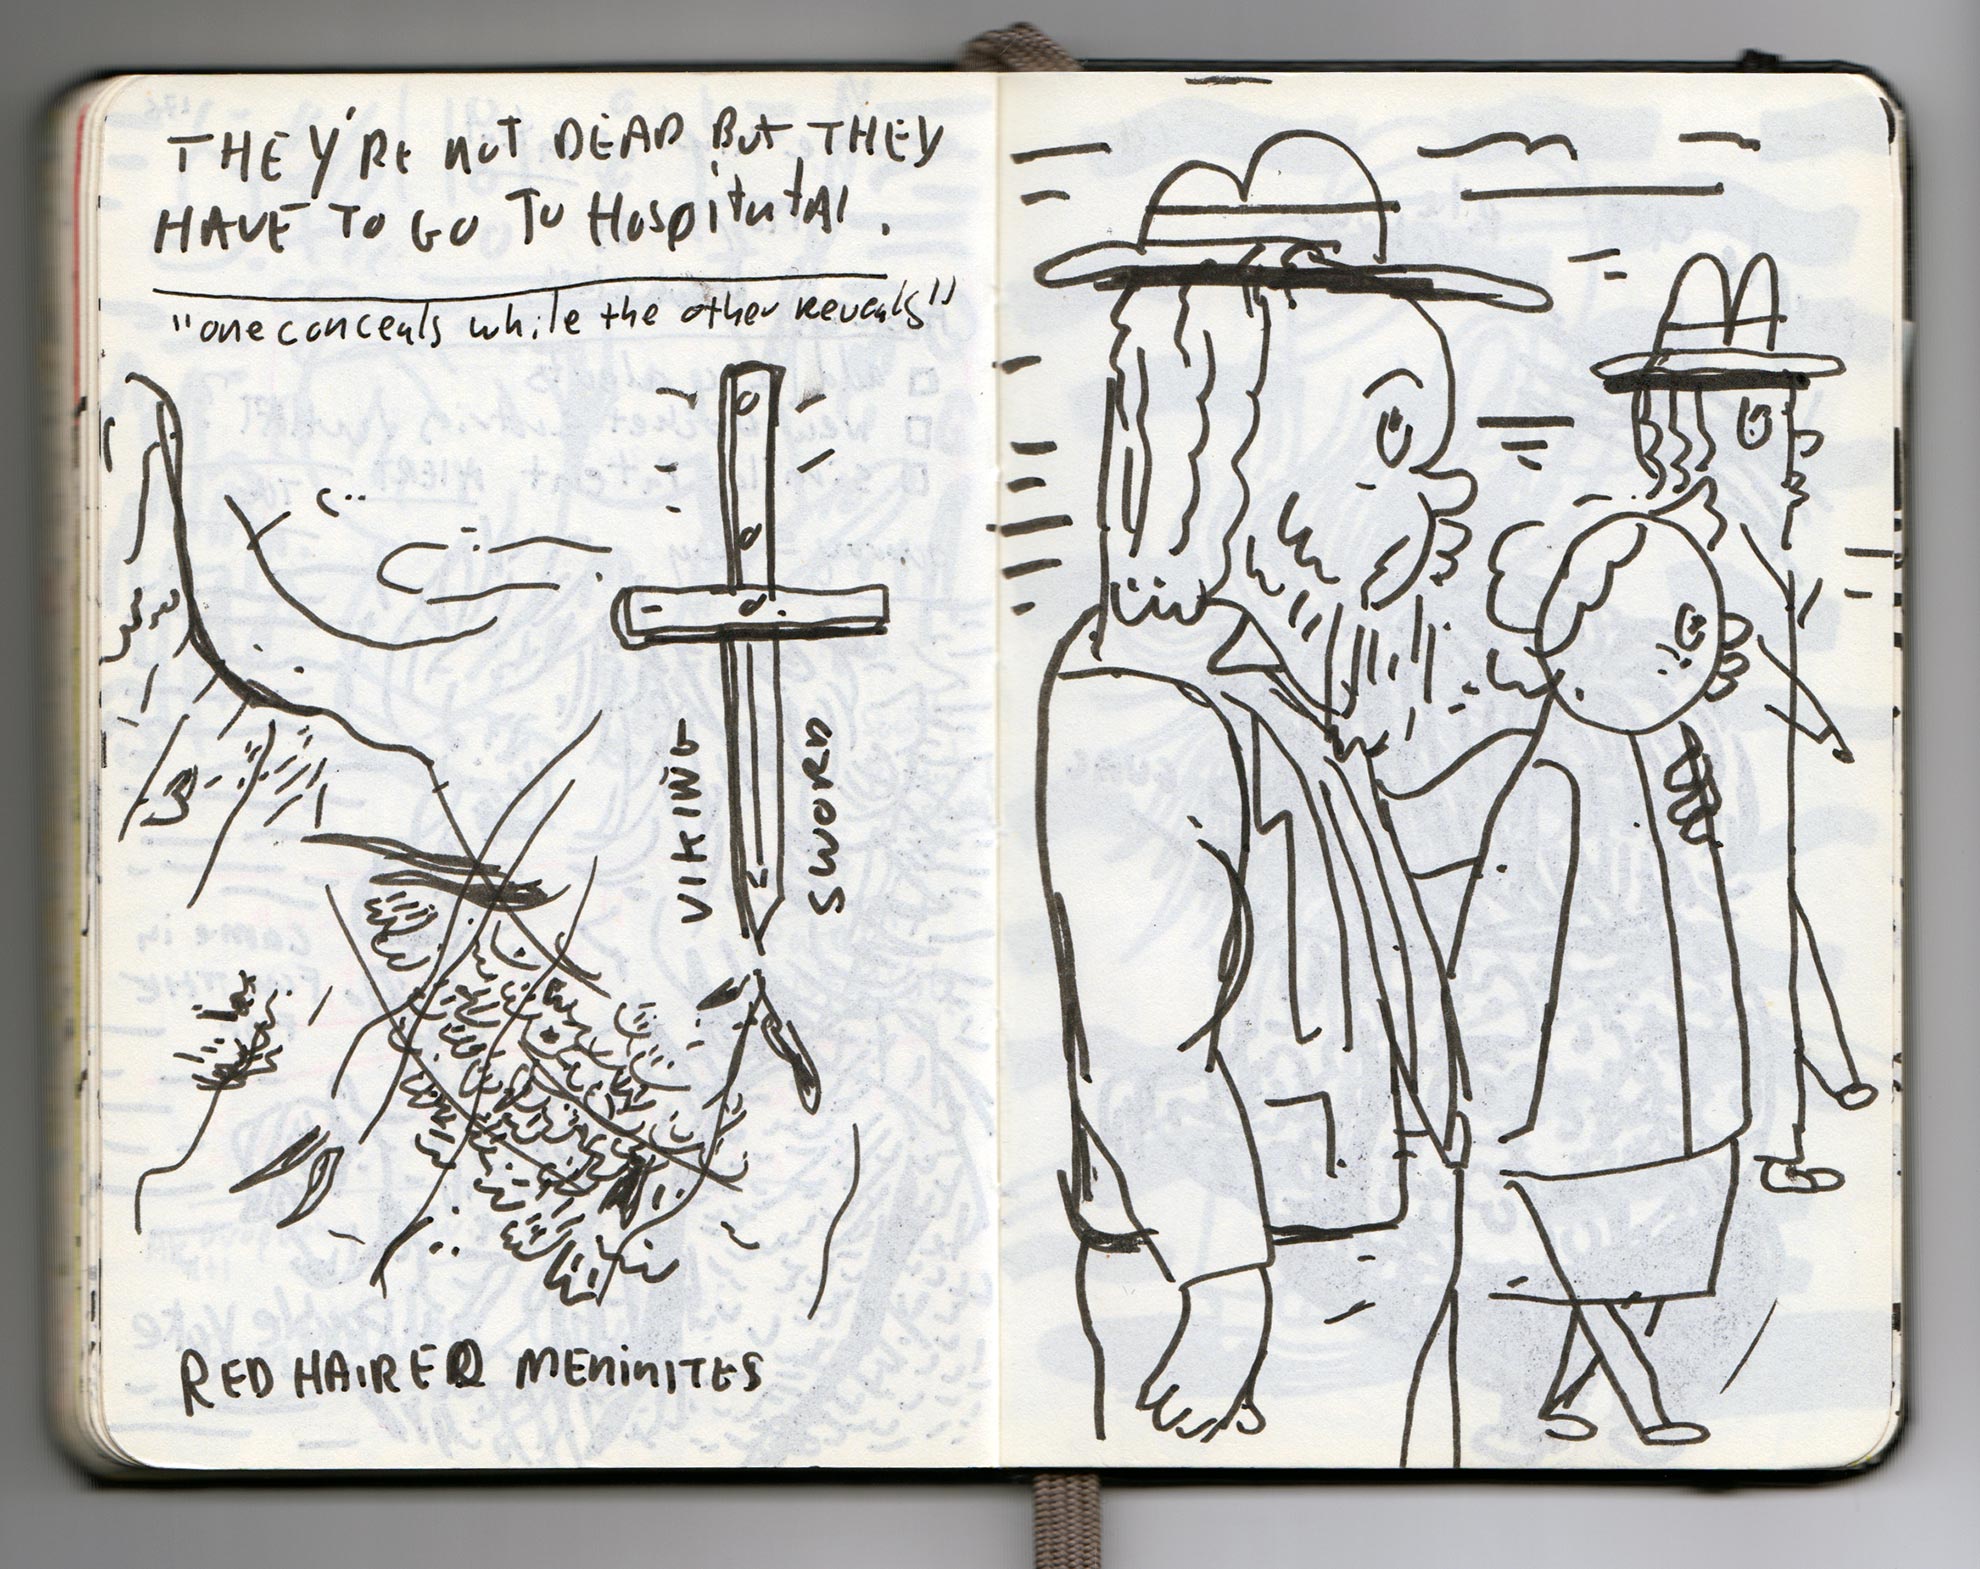 THEY'RE NOT DEAD BUT THEY
HAVE TO GO TO HOSPITUTAL.
"one conceals while the other reveals"
VIKING
SWORD
RED HAIRED MENINITES